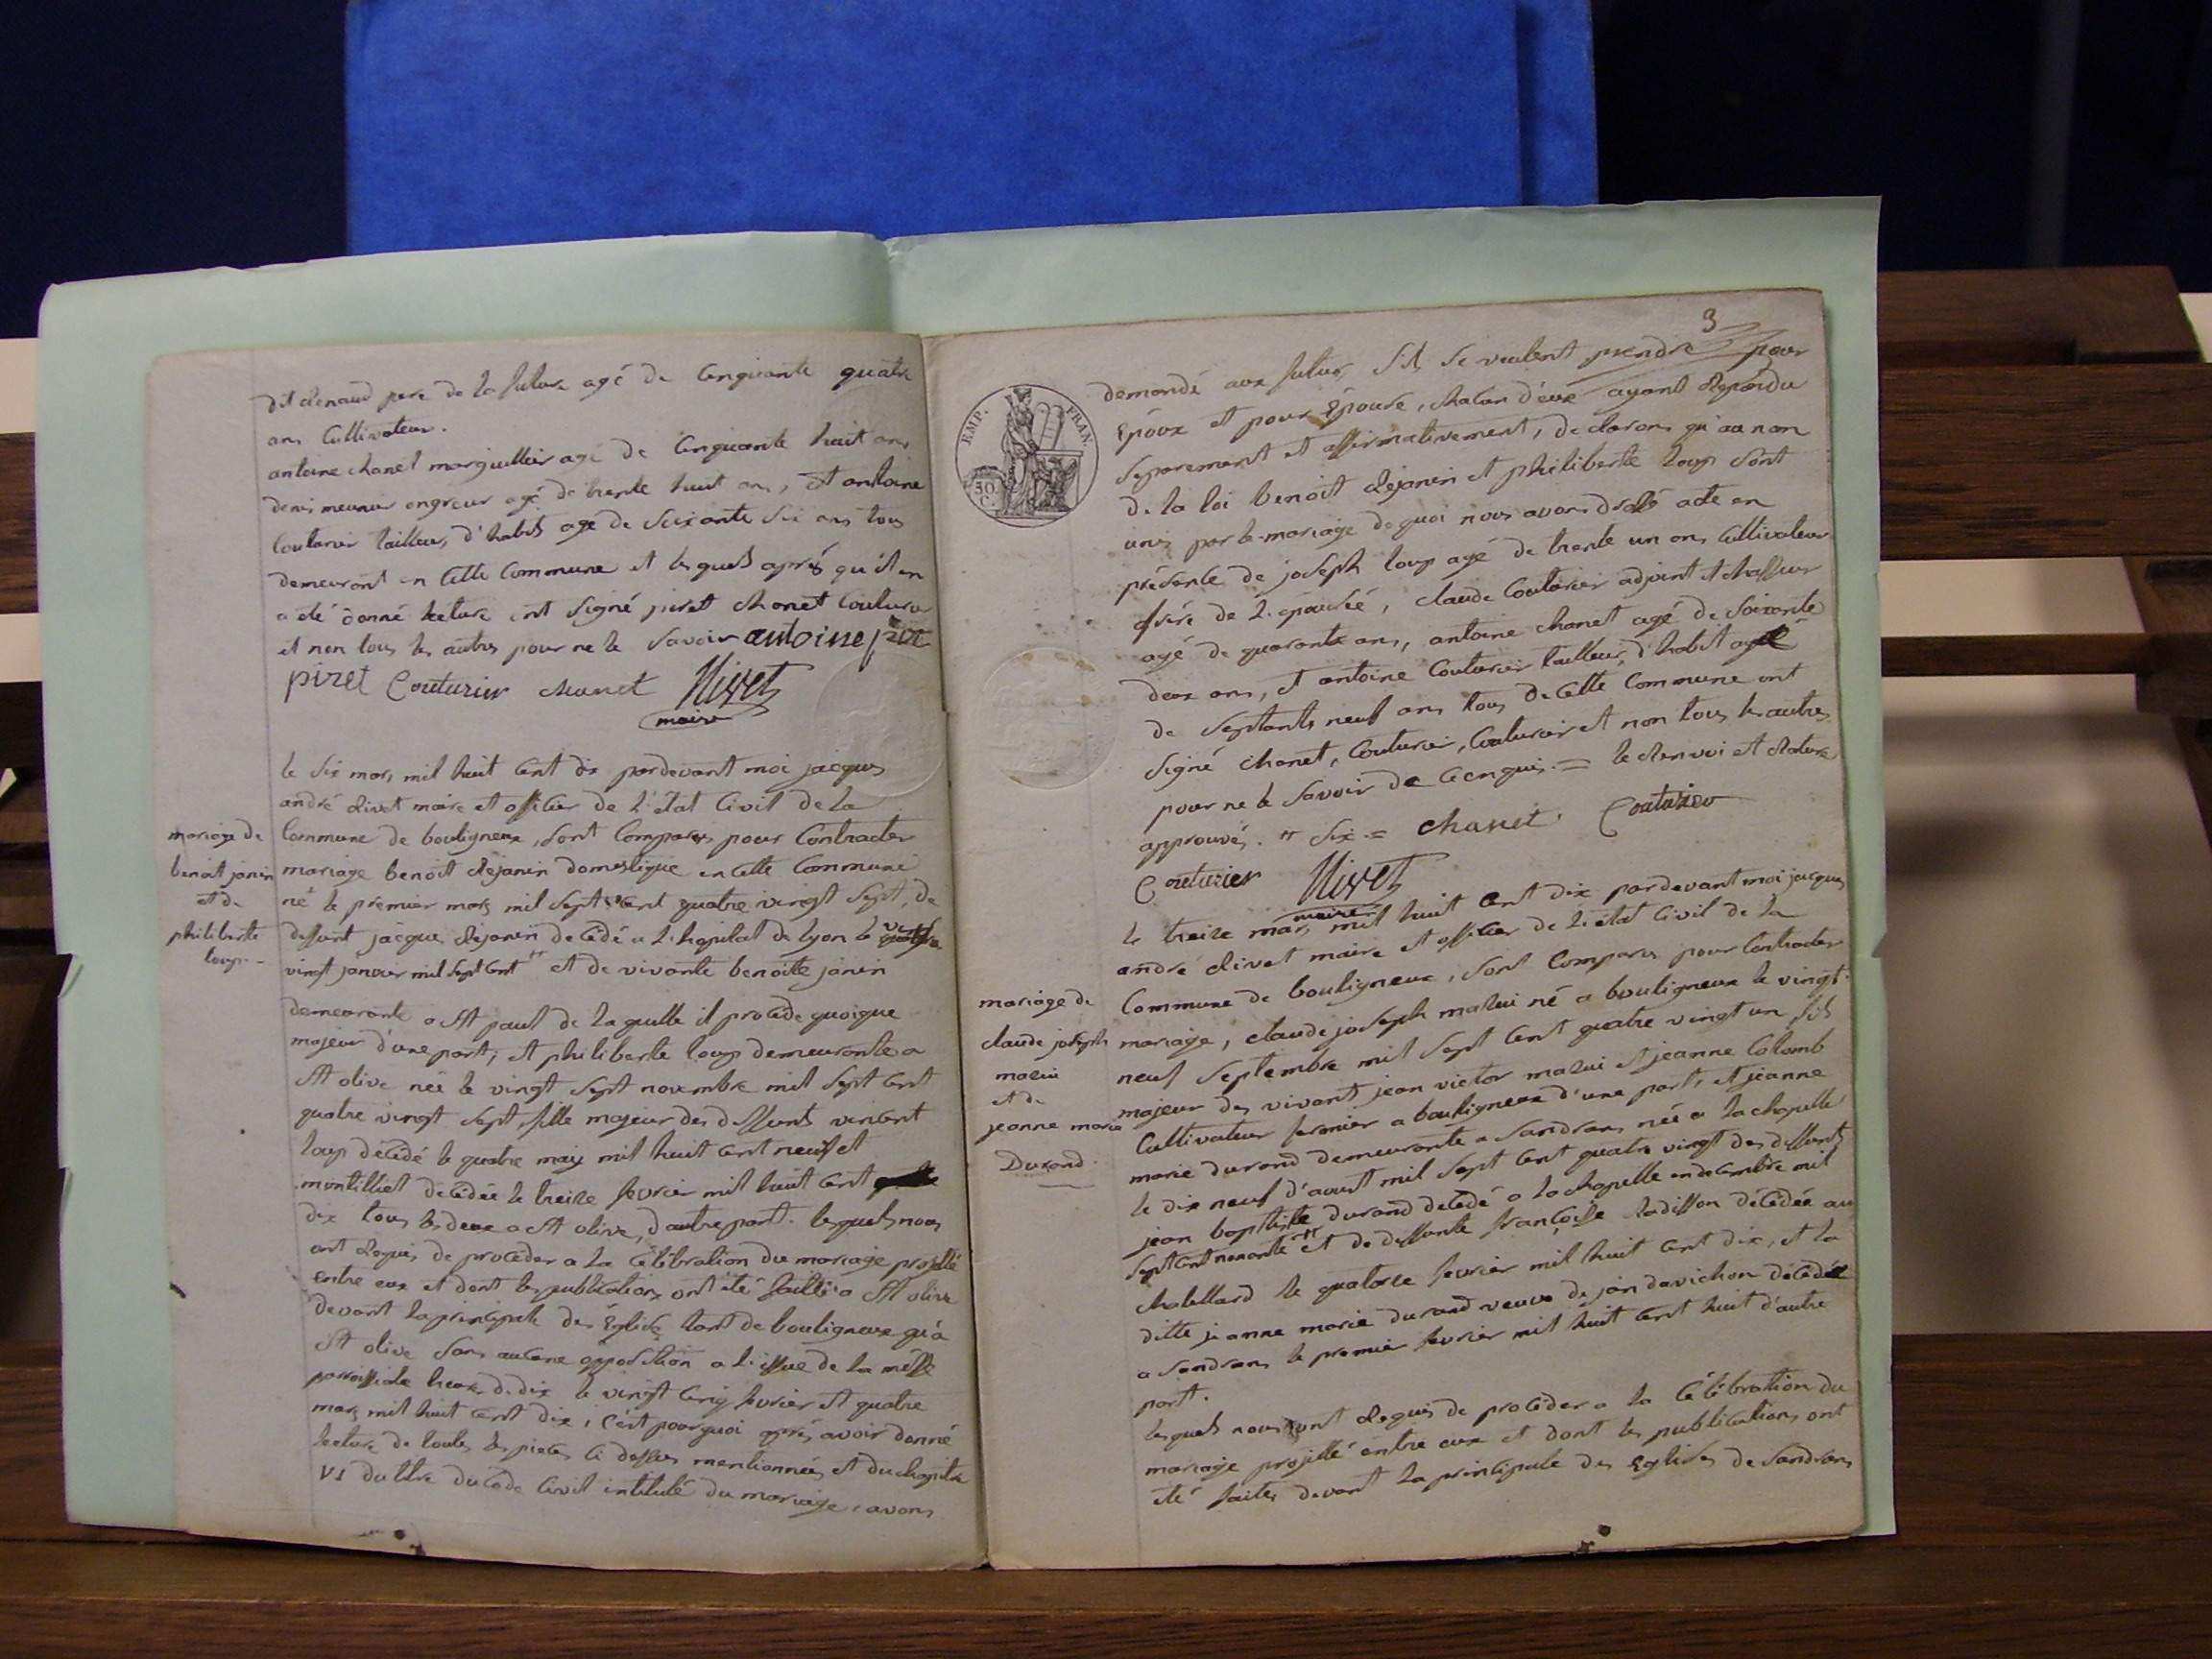 dit Renaud pere de la future agé de cinquante quatre
ans Cultivateur.
antoine chanel marguillier agé de cinquante huit ans
denis meunier agé de trente huit ans, et antoine
Couturier tailleur d'habits agé de soixante six ans tous
demeurant en cette Commune et lesquels après qu'il en
a été donné lecture ont signé piret chanet Couturier
et non tous les autres pour ne le savoir antoine
piret Couturier chanet Nivet
maire
le six mars mil huit cent dix pardevant moi jacques
andré nivet maire et officier de l'état civil de la
Commune de bouligneux, sont comparus pour contracter
mariage benoit Rejanin domestique en cette Commune
né le premier mars mil sept cent quatre vingt sept, de
deffunt jacque Rejanin decédé a l'hopital de lyon le
vingt janvier mil sept cent et de vivante benoite janin
demeurante a St paul de laquelle il procede quoique
majeur d'une part, et philiberte loup demeurante a
St olive née le vingt sept novembre mil sept cent
quatre vingt sept, fille majeur des deffunts vincent
loup décédé le quatre may mil huit cent neuf et
montilliet decédée le treize fevrier mil huit cent
dix tous les deux a St olive, d'autre part. lesquels nous
ont requis de proceder a la célébration du mariage projetté
entre eux et dont les publications ont été faittes a St olive
devant la principale des Eglises tant de bouligneux qu'a
St olive sans aucune opposition a l'issue de la messe
paroissiale heure de dix le vingt cinq fevrier et quatre
mars mil huit cent dix; c'est pourquoi après avoir donné
lecture de toutes les pieces ci dessus mentionnées et du chapitre
VI du titre du Code Civil intitulé du mariage, avons
mariage de
benoit janin
et de
philiberte
loup
3
EMP. FRAN.
50 C.
demandé aux futurs s'ils se veulent prendre pour
Epoux et pour Epouse, chacun d'eux ayant répondu
séparement et affirmativement, declarons qu'au nom
de la loi benoit Rejanin et philiberte loup sont
unis par le mariage de quoi nous avons dressé acte en
présence de joseph loup agé de trente un ans Cultivateur
frère de l'épousée, claude Couturier adjoint et chasseur
agé de quarante ans, antoine chanet agé de soixante
deux ans, et antoine Couturier tailleur d'habit agé
de septante neuf ans tous de cette Commune ont
signé chanet, Couturier, Couturier et non tous les autres
pour ne le savoir de ce enquis = le Renvoi et Rature
approuvés. " six = chanet. Couturier
Couturier Nivet
maire
le treize mars mil huit cent dix pardevant moi jacques
andré nivet maire et officier de l'état civil de la
Commune de bouligneux, sont comparus pour contracter
mariage, claude joseph malui né a bouligneux le vingt
neuf septembre mil sept cent quatre vingt un fils
majeur des vivant jean victor malui et jeanne Colomb
Cultivateur fermier a bouligneux d'une part, et jeanne
marie durand demeurante a sandrans née a la chapelle
le dix neuf d'aoust mil sept cent quatre vingt des deffunts
jean baptiste durand decédé a la chapelle en decembre mil
sept cent nonante et de deffunte françoise decédée au
Chatellard le quatorze fevrier mil huit cent dix, et la
ditte jeanne marie durand veuve de jean davichon décédé
a sandrans le premier fevrier mil huit cent huit d'autre
part.
lesquels nous ont requis de proceder a la Célébration du
mariage projetté entre eux et dont les publications ont
été faites devant la principale des Eglises de sandrans
mariage de
claude joseph
malui
et de
jeanne marie
Durand